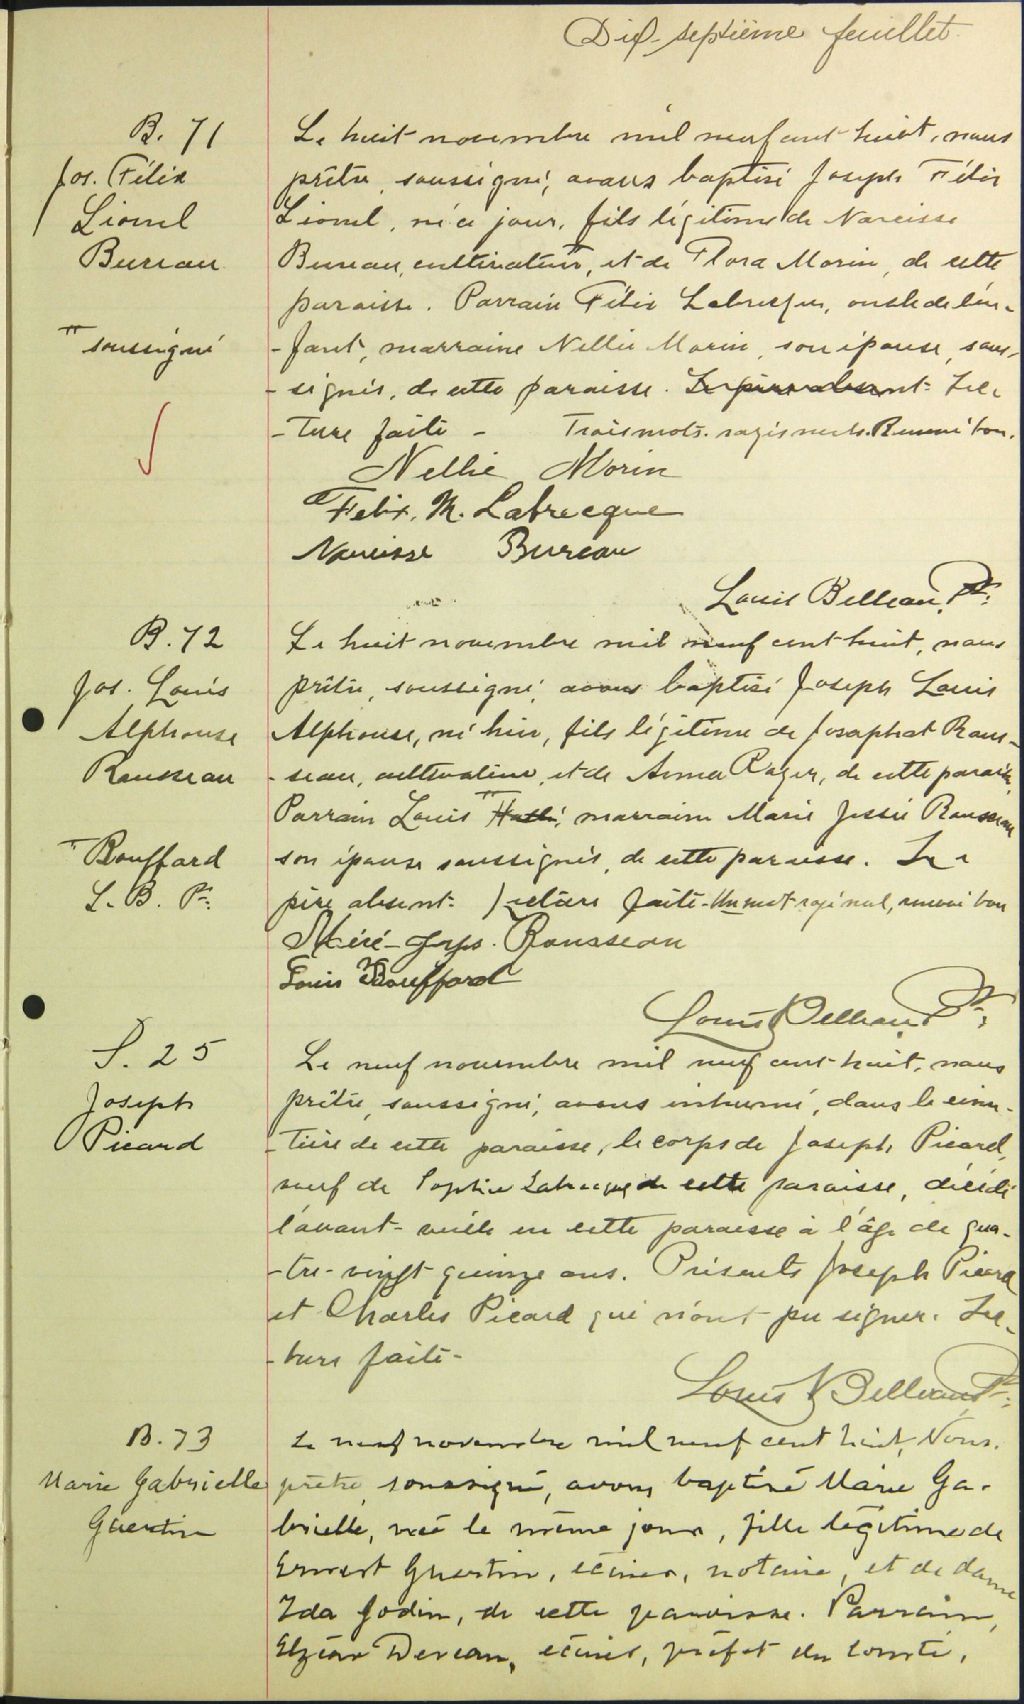 Dix-septième feuillet
B. 71
Jos. Félix
Lionel
Bureau
soussigné
Le huit novembre mil neuf cent huit, nous
prêtre, soussigné, avons baptisé Joseph Félix
Lionel, né ce jour, fils légitime de Narcisse
Bureau, cultivateur, et de Flora Morin, de cette
paroisse. Parrain Félix Labrecque, oncle de l'en-
-fant, marraine Nellie Morin, son épouse, sous-
-signés, de cette paroisse. Le père absent. Lec
-ture faite - Trois mots rayés nuls. Renvoi bon.
Nellie Morin
Felix. M. Labrecque
Narcisse Bureau
Louis Belleau, Ptre
B. 72
Jos. Louis
Alphonse
Rousseau
Bouffard
L. B. Ptre
Le huit novembre mil neuf cent huit, nous
prêtre, soussigné, avons baptisé Joseph Louis
Alphonse, né hier, fils légitime de Josaphat Rous-
-seau, cultivateur, et de Anna Roger, de cette paroisse,
Parrain Louis marraine Marie Rousseau
son épouse soussignés, de cette paroisse. Le
père absent. Lecture faite - Un mot rayé nul, renvoi bon
Rousseau
Louis Bouffard
Louis Belleau Ptre
S. 25
Joseph
Picard
Le neuf novembre mil neuf cent huit, nous
prêtre, soussigné, avons inhumé, dans le cime-
-tière de cette paroisse, le corps de Joseph Picard,
veuf de Sophie Labrecque de cette paroisse, décédé
l'avant-veille en cette paroisse à l'âge de qua-
-tre-vingt quinze ans. Présents Joseph Picard
et Charles Picard qui n'ont pu signer. Lec-
-ture faite-
Louis Belleau Ptre
B. 73
Marie Gabrielle
Guertin
Le neuf novembre mil neuf cent huit, Nous.
prêtre soussigné, avons baptisé Marie Ga-
brielle, née le même jour, fille légitime de
Ernest Guertin, écuier, notaire, et de dame
Ida Godin, de cette paroisse. Parrain,
Elzéar écuier, préfet du comté,